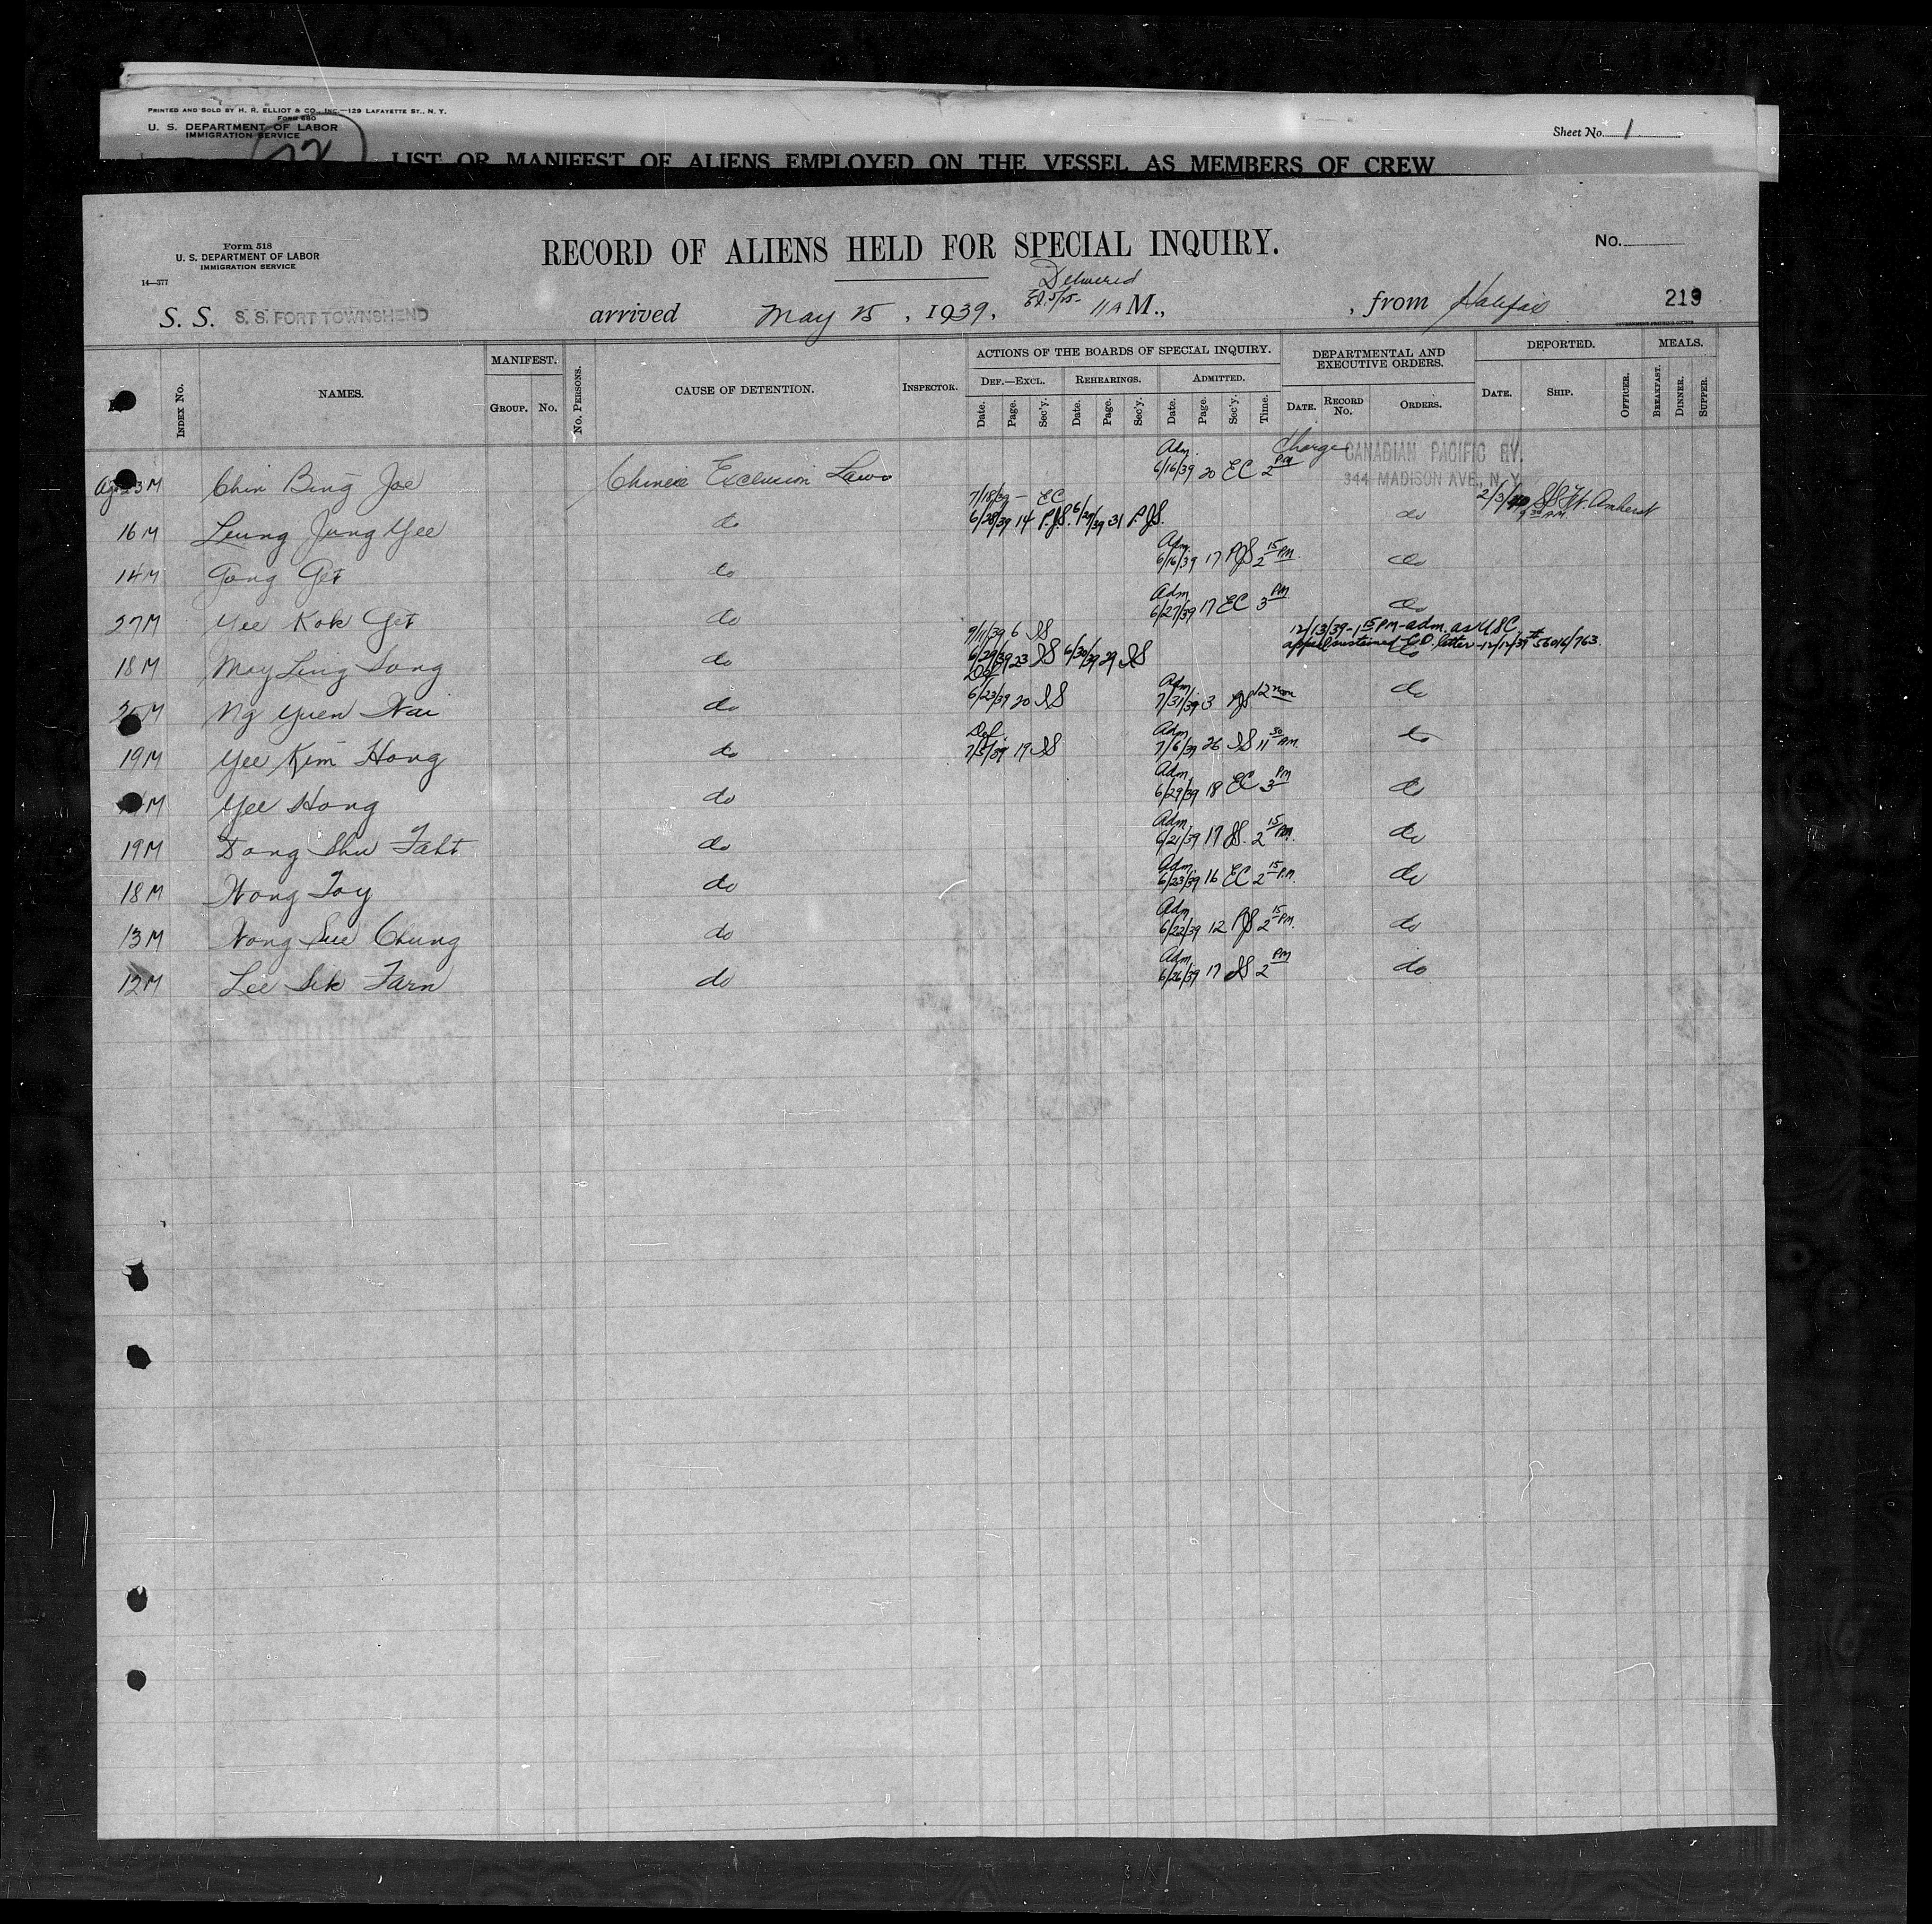 PRINTED AND SOLD BY H. R. ELLIOT & CO., INC.—129 LAFAYETTE ST., N. Y.
FORM 680
U. S. DEPARTMENT OF LABOR
IMMIGRATION SERVICE
Sheet No. 1
LIST OR MANIFEST OF ALIENS EMPLOYED ON THE VESSEL AS MEMBERS OF CREW
Form 518
U. S. DEPARTMENT OF LABOR
IMMIGRATION SERVICE
14—377
RECORD OF ALIENS HELD FOR SPECIAL INQUIRY.
No.
Delivered
S. S. S. S. FORT TOWNSHEND arrived May 25, 1939, 11 A M., , from Halifax 219
GOVERNMENT PRINTING OFFICE
INDEX No. NAMES. MANIFEST. GROUP. No. No. PERSONS. CAUSE OF DETENTION. INSPECTOR.
ACTIONS OF THE BOARDS OF SPECIAL INQUIRY. DEPARTMENTAL AND EXECUTIVE ORDERS. DEPORTED. MEALS.
DEF.—EXCL. REHEARINGS. ADMITTED.
Date. Page. Sec'y. Date. Page. Sec'y. Date. Page. Sec'y. Time. DATE. RECORD No. ORDERS. DATE. SHIP. OFFICER. BREAKFAST. DINNER. SUPPER.
Charge CANADIAN PACIFIC RY.
344 MADISON AVE., N. Y.
3 M Chin Bing Joe Chinese Exclusion Laws Adm. 6/16/39 20 EC 2 PM
7/18/39 — EC
16 M Leung Jung Yee do 6/28/39 14 P.J.S. 6/29/39 31 P.J.S. do 2/3/40 SS Ft. Amherst
14 M Gong Get do Adm 6/16/39 17 PJS 2 15 PM. do
27 M Yee Kok Get do Adm 6/27/39 17 EC 3 PM do
9/11/39 6 SS 12/13/39 - 1 15 PM - adm. as USC
appeal sustained C.O. letter - 12/12/39 # 56016/763.
18 M May Ling Song do 6/29/39 23 SS 6/30/39 29 SS do
M Ng Yuen Wai do Def 6/23/39 20 SS Adm. 7/31/39 3 PJS 12 noon do
19 M Yee Kim Hong do Def. 7/5/39 19 SS Adm 7/6/39 26 SS 11 30 AM. do
M Yee Hong do Adm 6/29/39 18 EC 3 PM do
19 M Dong Shu Faht do Adm. 6/21/39 17 SS. 2 15 PM. do
18 M Wong Toy do Adm. 6/23/39 16 EC 2 15 P.M. do
13 M Wong Sue Chung do Adm 6/22/39 12 PJS 2 15 PM. do
12 M Lee Sik Farn do Adm. 6/26/39 17 SS 2 PM do